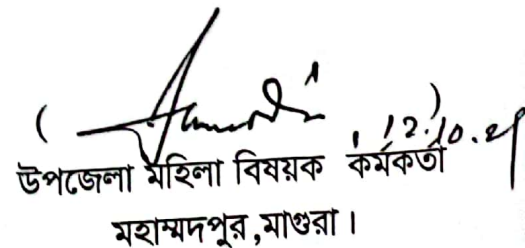 ( )
12.10.21
উপজেলা মহিলা বিষয়ক কর্মকর্তা
মহাম্মদপুর,মাগুরা।